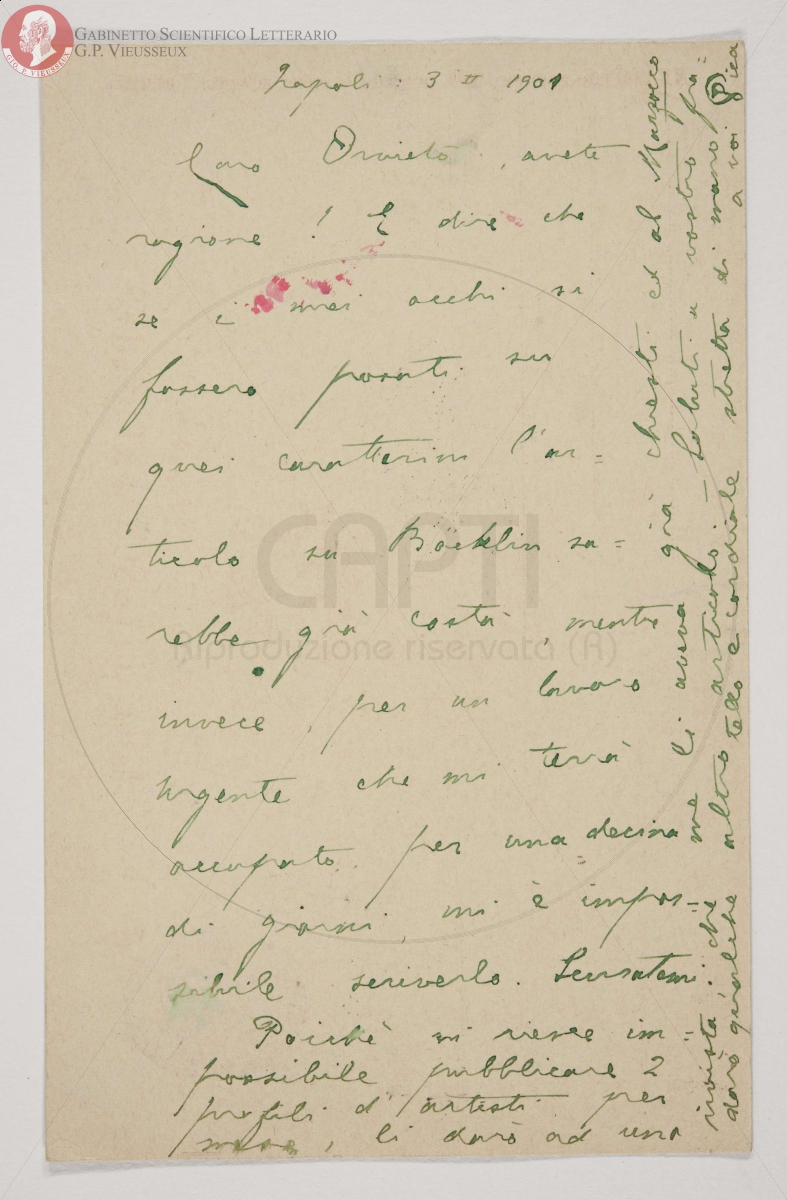 GABINETTO SCIENTIFICO LETTERARIO
G.P. VIEUSSEUX
GIO. PIETRO VIEUSSEUX
Napoli: 3 II 1901
Caro Orvieto, avete
ragione! E dire che
se i miei occhi si
fossero posati su
quei caratterini l'ar=
ticolo su Böcklin sa=
rebbe già costà, mentre
invece, per un lavoro
urgente che mi terrà
occupato per una decina
di giorni, mi è impos=
sibile scriverlo. Scusatemi.
Poichè mi riesce im=
possibile pubblicare 2
profili d'artisti per
mese, li darò ad una
rivista che me li aveva già chiesti ed al Marzocco
darò qualche altro articolo. – Saluti a vostro fra=
tello e cordiale stretta di mano
a voi Pica
CAPTI
Riproduzione riservata (R)